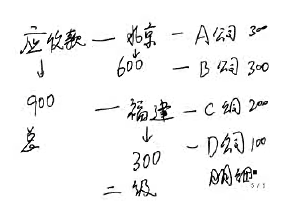 应收款 — 北京 — A公司 300
↓ 600 — B公司 300
900 — 福建 — C公司 200
总 ↓ — D公司 100
300 明细
二级